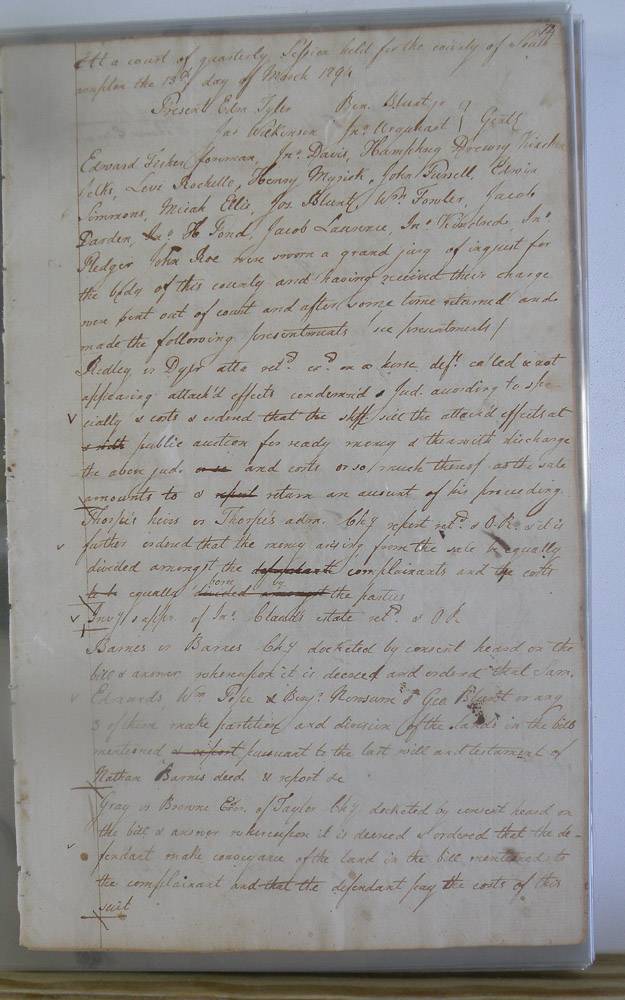 At a court of quarterly Session held for the county of South
ampton the 13th day of March 1794
Present Edm. Tyler Ben. Blunt jr
Jas Wilkinson Jno Urquhart } Gents
Edward Fisher foreman, Jno Davis, Humphrey Drewry Kinchen
Jelks, Levi Rochelle, Henry Myrick, John Pursell, Edwin
Simmons, Micah Ellis, Jos. Blunt, Wm Fowler, Jacob
Darden, Jno H Pond, Jacob Laurence, Jno Kindred, Jno
Pledger John Roe were sworn a grand jury of inquest for
the body of this county and having received their charge
were sent out of court and after some time returned and
made the following presentments see presentments/
Ridley vs Dyer atta retd exd on a horse deft called & not
appearing attach'd effects condemn'd & Jud. according to spe-
cially & costs & ordered that the shff sell the attach'd effects at
public auction for ready money & therewith discharge
the above jud. and costs or so much thereof as the sale
amounts to & return an account of his proceeding
Thorpe's heirs vs Thorpe's adm. Chy report retd & O.R. & it is
further ordered that the money arising from the sale be equally
divided amongst the defendants complainants and the costs
to be equally born by the parties
Invy & appr. of Jno Claud's estate retd & O R
Barnes vs Barnes Chy docketed by consent heard on the
bill & answer whereupon it is decreed and ordered that Sam.
Edwards Wm Pope & Benj. Newsum & Geo Blunt or any
3 of them make partition and division of the lands in the bill
mentioned & report pursuant to the last will and testament of
Nathan Barnes deed & report &c
Gray vs Browne Exr. of Taylor Chy docketed by consent heard on
the bill & answer whereupon it is decreed & ordered that the de-
fendant make conveyance of the land in the bill mentioned to
the complainant and that the defendant pay the costs of this
suit